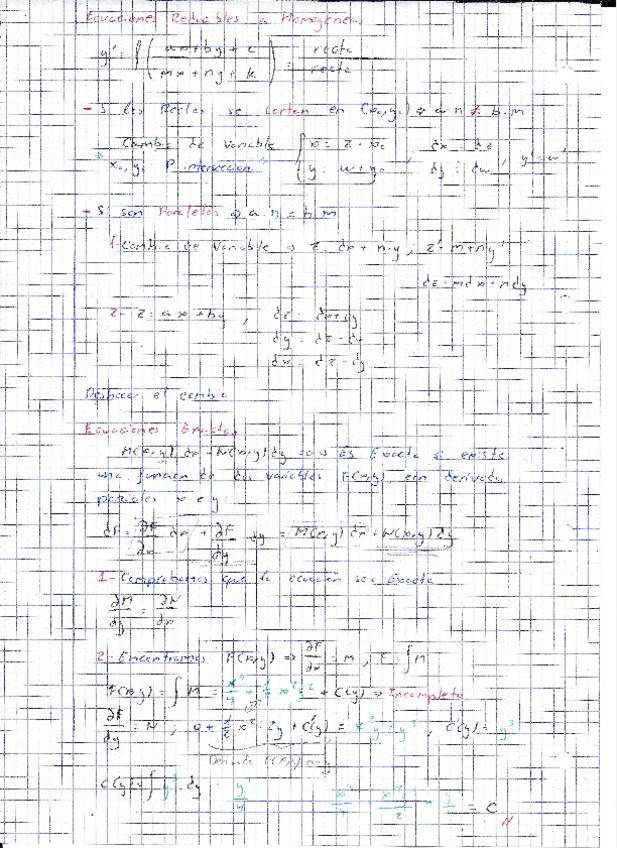 Ecuaciones Reducibles a Homogéneas
y' = f ( ax+by+c / mx+ny+k ) = recta / recta
- Si las Rectas se Cortan en (x₀,y₀) ⇒ a·n ≠ b·m
Cambio de Variable { x = z + x₀ dx = dz
x₀, y₀ P. intersección y = w + y₀ , dy = dw , y' = w'
- Si son Paralelas ⇒ a·n = b·m
1- Cambio de Variable ⇒ z = + n·y , z' = m+ny'
dz = mdx + ndy
2- z = ax+by , dz =
dy = dz -
dx = dz - dy
Deshacer el cambio
Ecuaciones Exactas
M(x,y) dx + N(x,y) dy = 0 ⇒ Es Exacta si existe
una función de dos variables F(x,y), con derivadas
parciales x e y:
dF = ∂F/∂x dx + ∂F/∂y dy = M(x,y) dx + N(x,y) dy
1- Comprobamos que la ecuación sea Exacta
∂M/∂y = ∂N/∂x
2- Encontramos F(x,y) ⇒ ∂F/∂x = M , F = ∫ M
F(x,y) = ∫ M = x⁴/4 + 1/2 x² y² + C(y) ⇒ Incompleto
∂F/∂y = N ; 0 + 1/2 x² · 2y + C'(y) = x²y + y³ , C'(y) = y³
C(y) = ∫ y³ · dy y⁴/4 x⁴/4 + x²y²/2 = C